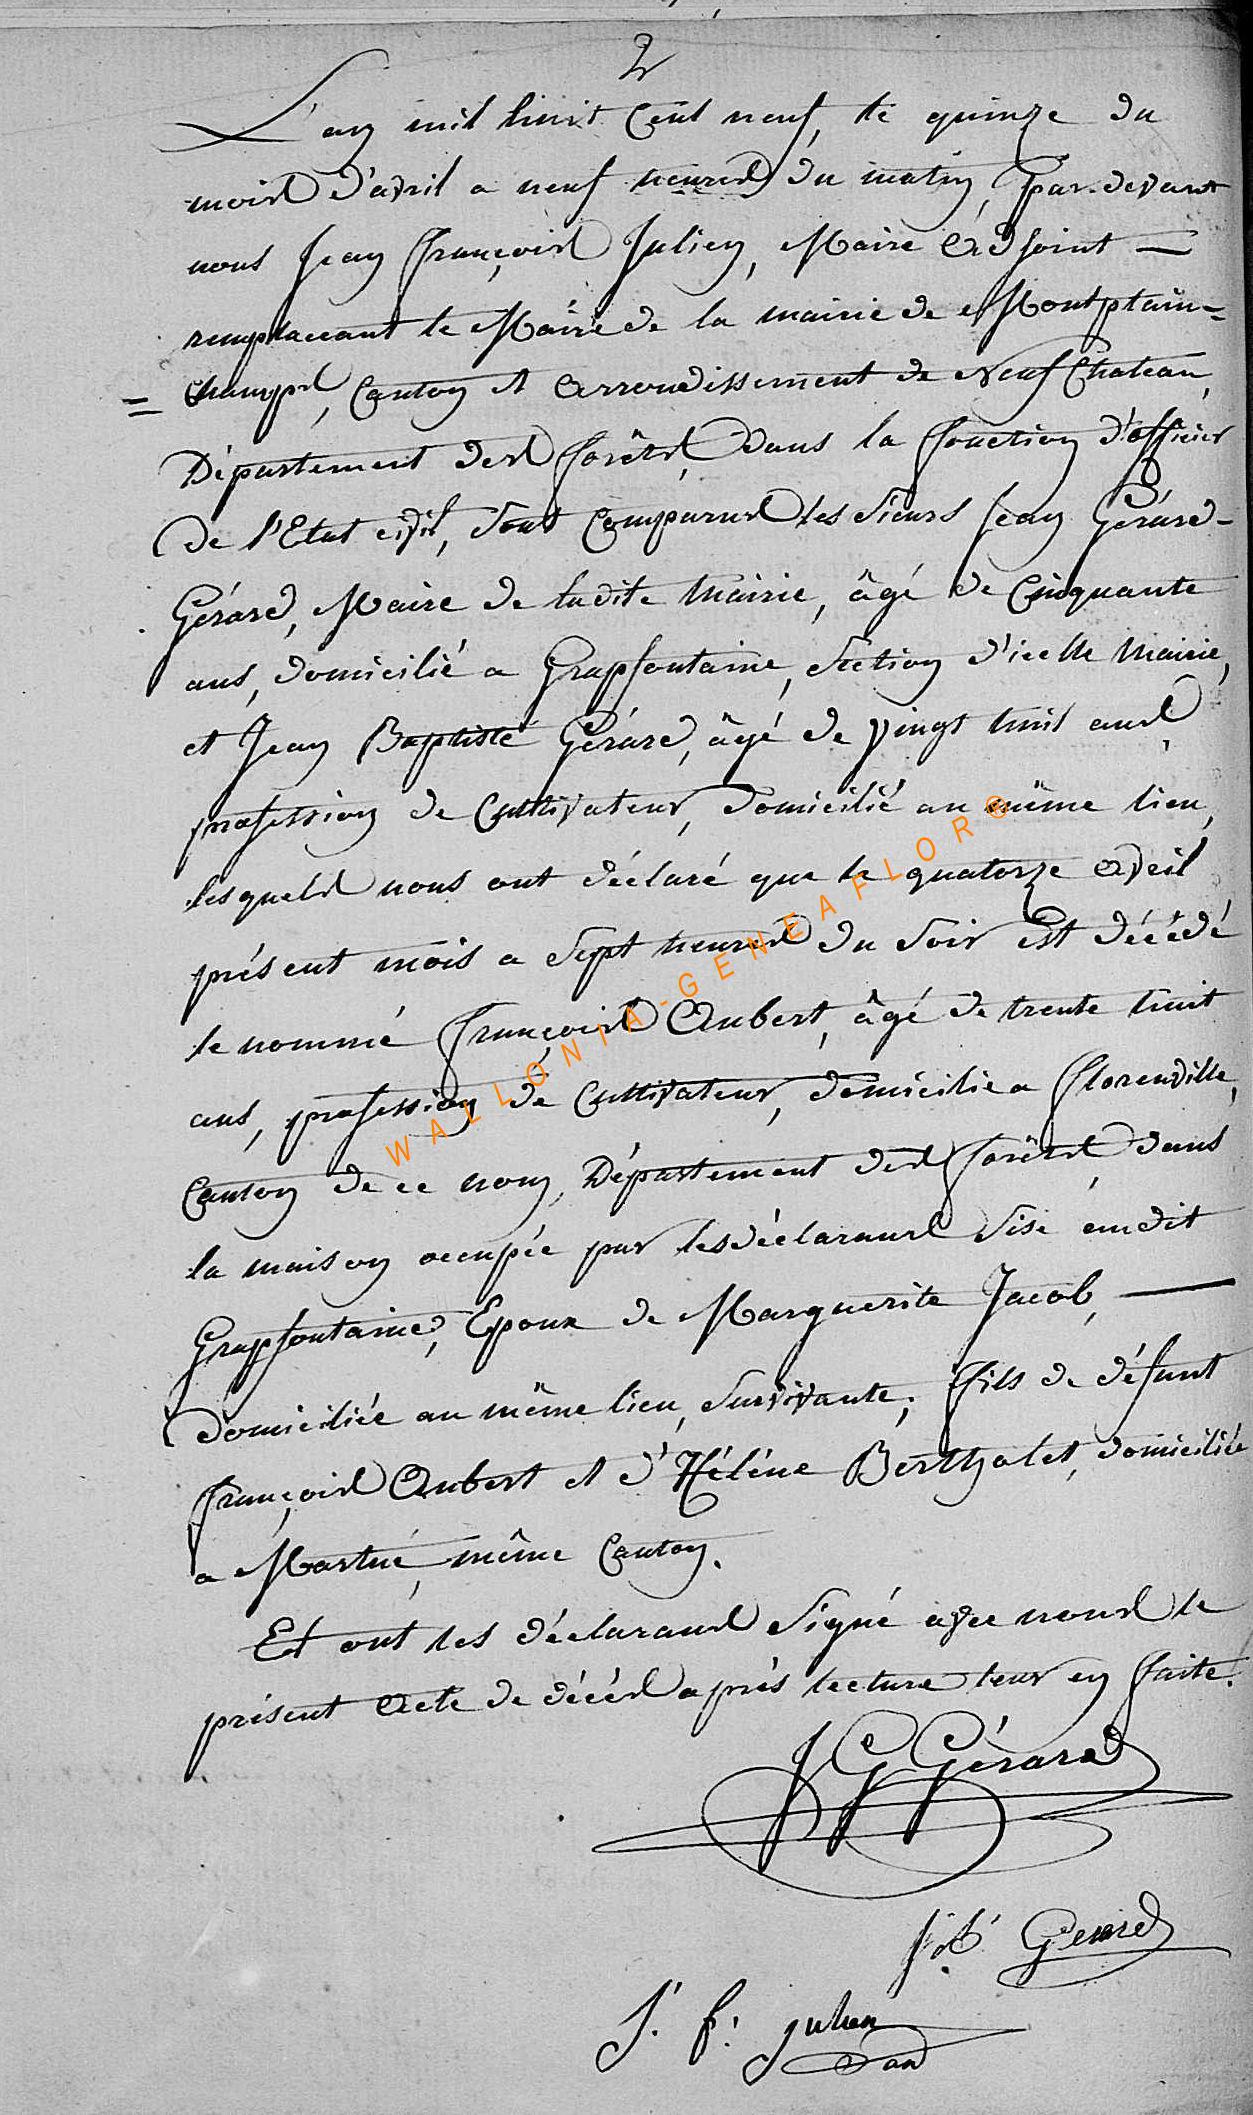 2
L'an mil huit Cent neuf, le quinze du
mois d'avril a neuf heures du matin, par-devant
nous Jean François Julien, Maire Adjoint —
remplaccant le Maire de la mairie de Montplain-
= Champs, Canton et Arrondissement de Neufchateau,
Département des forêts, dans la fonction d'officier
de l'Etat civil, sont Comparus les sieurs Jean Gérard-
Gérard, Maire de ladite Mairie, âgé de Cinquante
ans, domicilié a Grapfontaine, section d'icelle Mairie,
et Jean Baptiste Gérard, âgé de vingt huit ans,
profession de Cultivateur, domicilié au même lieu,
lesquels nous ont déclaré que le quatorze avril
présent mois a sept heures du soir est décédé
le nommé François Aubert, âgé de trente huit
ans, profession de Cultivateur, domicilié a florenville,
Canton de ce nom, Département des forêts, dans
la maison occupée par les déclarans sise audit
Grapfontaine, Epoux de Marguerite Jacob, —
domiciliée au même lieu, survivante, fils de défunt
françois Aubert et d'Héléne Bertholet, domiciliée
a Martué, même Canton.
Et ont les déclarans signé avec nous le
présent Acte de décés après lecture leur en faite.
J G Gérard
J: B: Gerard
J. f: julien
WALLONIA-GENEAFLOR®